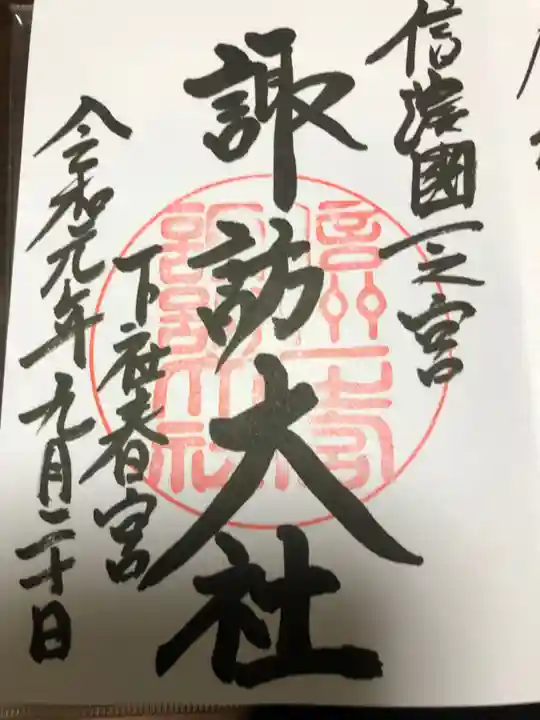 信濃國一之宮
諏訪大社
下社春宮
令和元年九月二十日